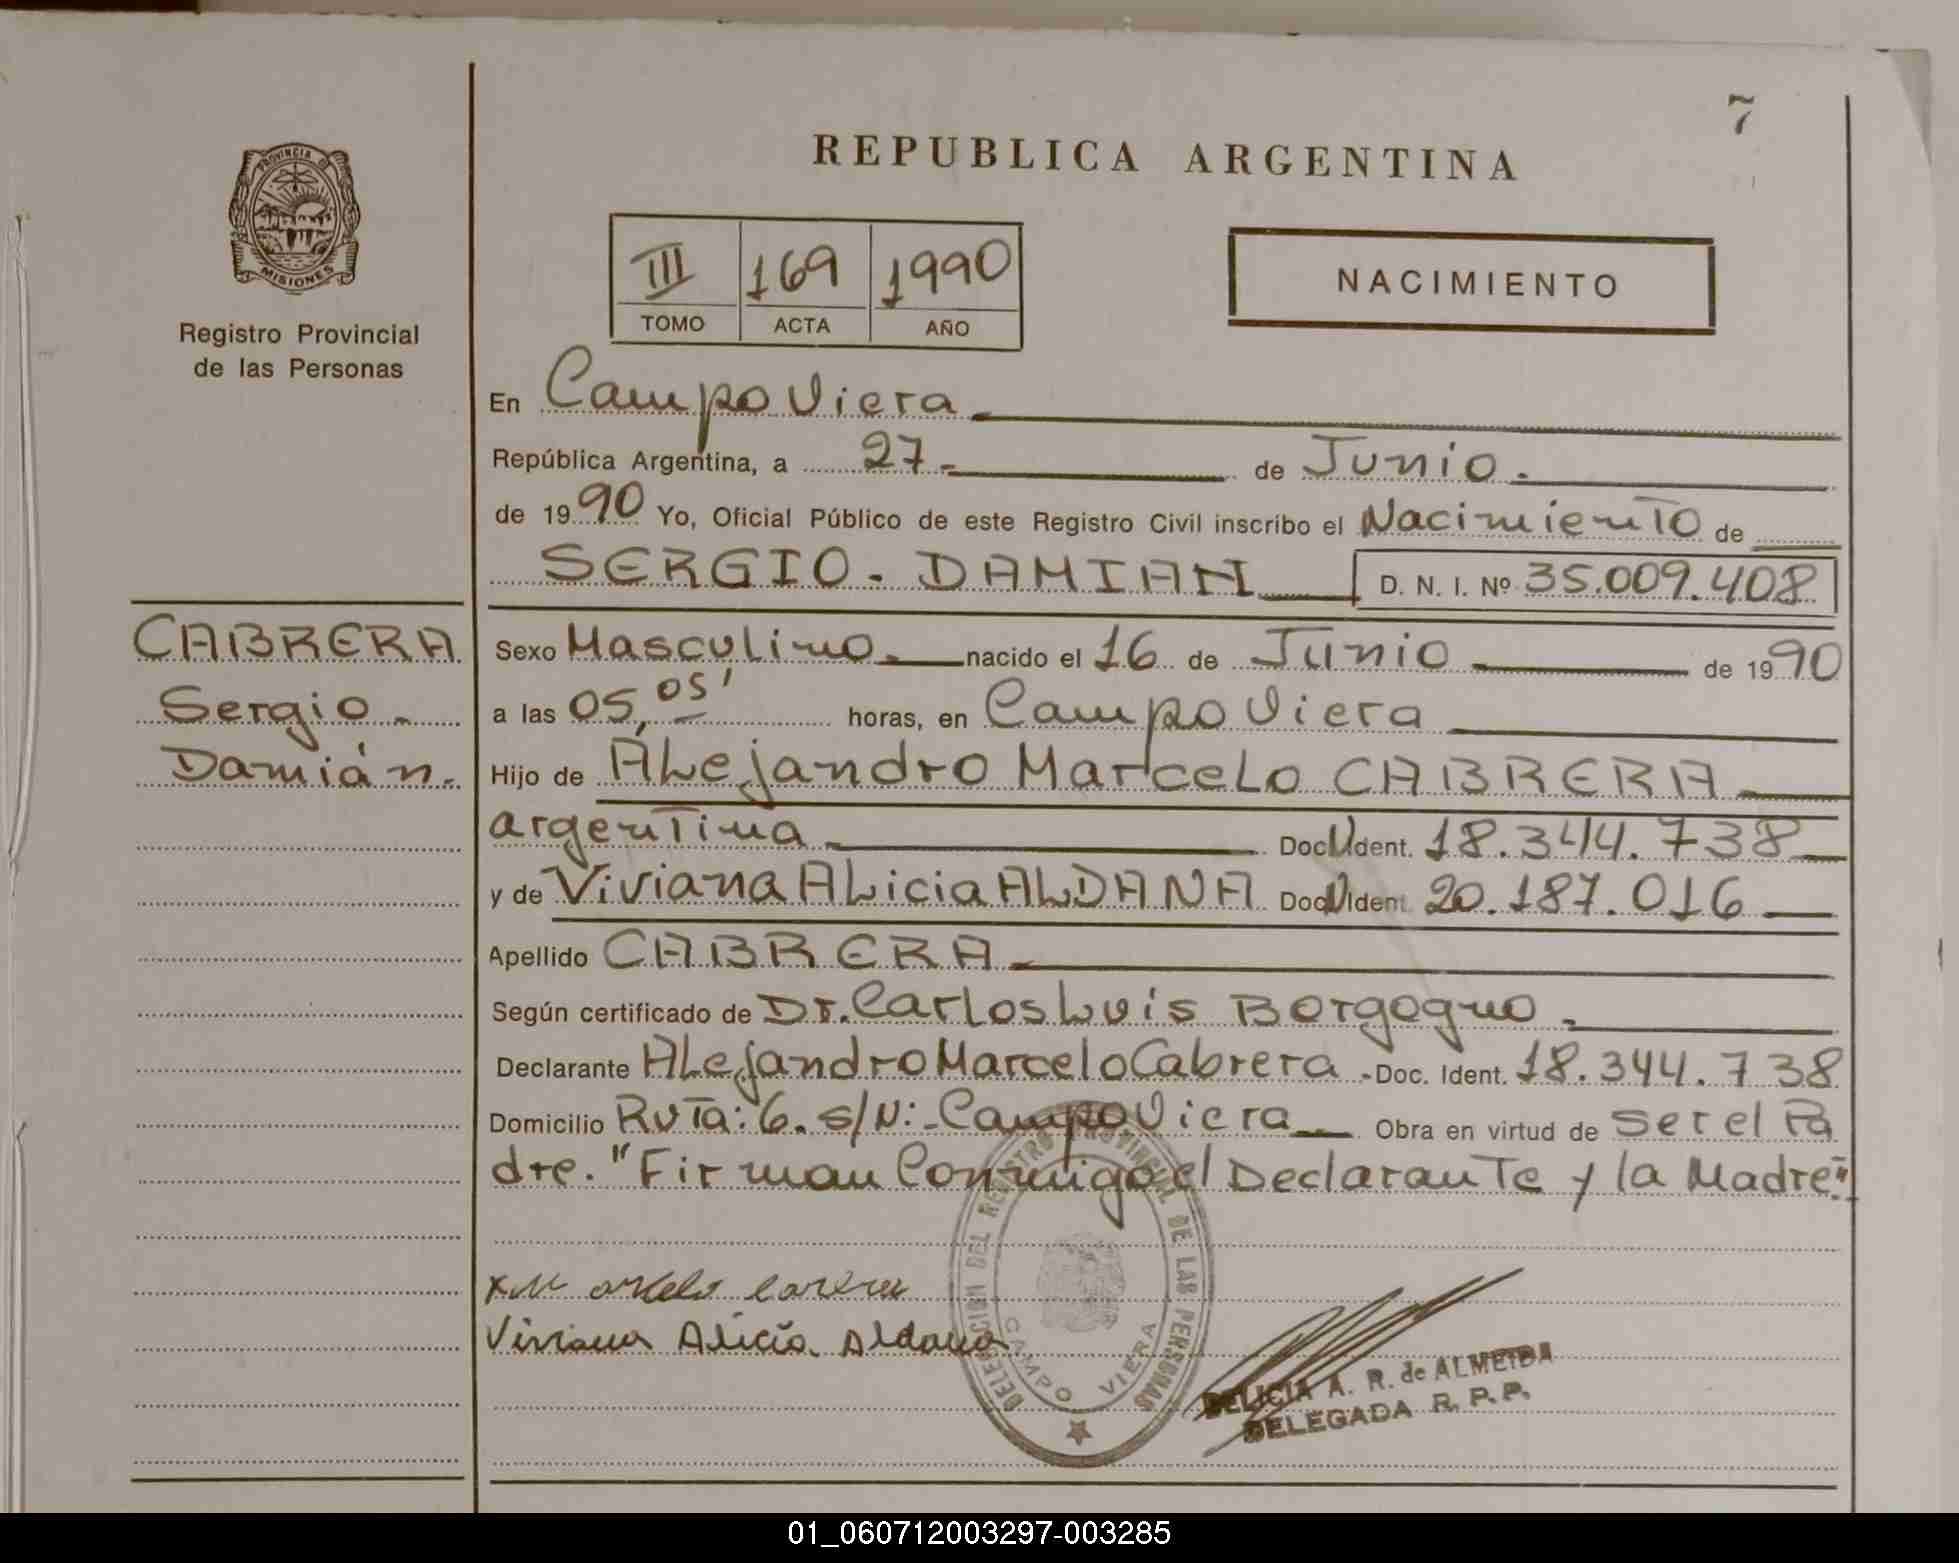 7
REPUBLICA ARGENTINA
PROVINCIA DE
MISIONES
Registro Provincial
de las Personas
III 169 1990
TOMO ACTA AÑO
NACIMIENTO
En Campo Viera
República Argentina, a 27 de Junio.
de 1990 Yo, Oficial Público de este Registro Civil inscribo el Nacimiento de
SERGIO. DAMIAN D. N. I. Nº 35.009.408
CABRERA
Sergio
Damián.
Sexo Masculino. nacido el 16 de Junio de 1990
a las 05,05' horas, en Campo Viera
Hijo de ALejandro MarceLo CABRERA
argentina Doc. Ident. 18.344.738
y de Viviana ALicia ALDANA Doc. Ident. 20.187.016
Apellido CABRERA
Según certificado de Dr. Carlos Luis Borgogno
Declarante ALejandro Marcelo Cabrera - Doc. Ident. 18.344.738
Domicilio Ruta: 6. s/N: - Campo Viera Obra en virtud de ser el Pa
dre. "Firman Conmigo el Declarante y la Madre"
Viviana Alicia Aldana
DELEGACION DEL REGISTRO PROVINCIAL DE LAS PERSONAS
CAMPO VIERA
DELICIA A. R. de ALMEIDA
DELEGADA R. P. P.
01_060712003297-003285